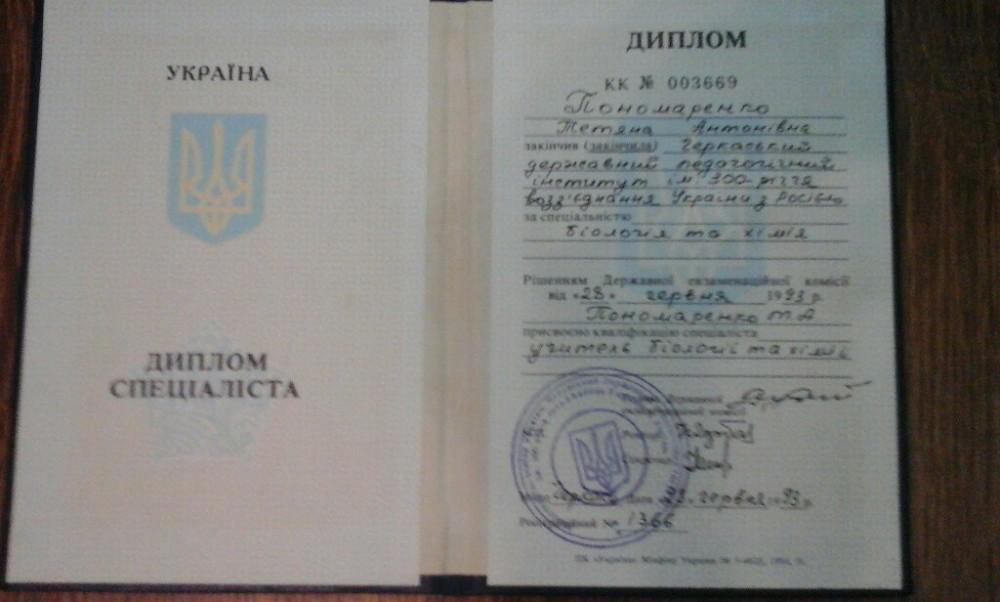 УКРАЇНА
ДИПЛОМ
СПЕЦІАЛІСТА
ДИПЛОМ
КК № 003669
Пономаренко
Тетяна Антонівна
закінчив (закінчила) Черкаський
державний педагогічний
інститут ім 300-річчя
возз'єднання України з Росією
за спеціальністю
біологія та хімія
Рішенням Державної екзаменаційної комісії
від «28» червня 1993 р.
Пономаренко Т.А
присвоєно кваліфікацію спеціаліста
учитель біології та хімії
екзаменаційної комісії
28. червня 1993 р.
Реєстраційний № 1366